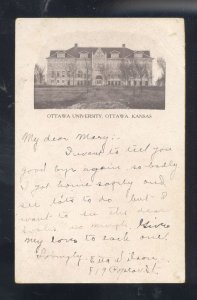 OTTAWA UNIVERSITY, OTTAWA, KANSAS
My dear Mary:-
I want to tell you
good bye again so badly
I got home safely and
see lots to do, but I
want to see the dear
so much. Give
my love to each one.
Lovingly
819